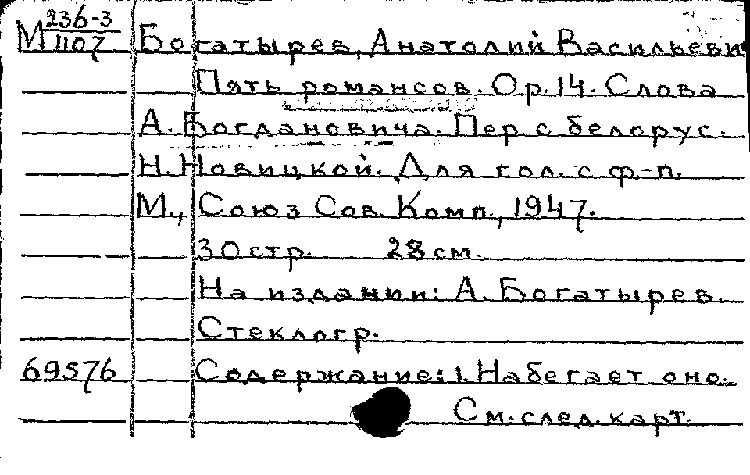 М 236-3/1107 Богатырев, Анатолий Васильевич
Пять романсов. Op. 14. Слова
А. Богдановича. Пер с белорус.
Н. Новицкой. Для гол. с ф-п.
М., Союз Сов. Комп., 1947.
30 стр. 28 см.
На издании: А. Богатырев.
Стеклогр.
69576 Содержание: 1. Набегает оно.
См. след. карт.